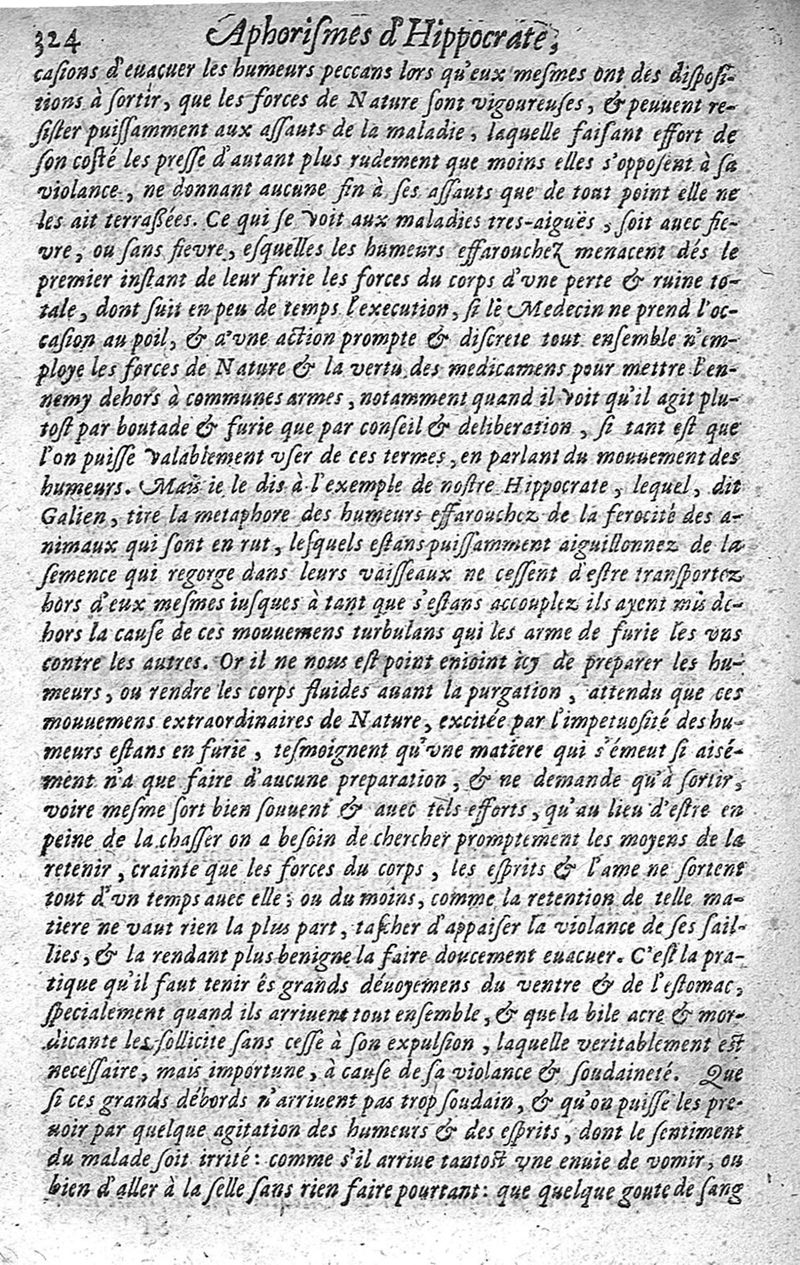 324 Aphoriſmes d'Hippocrate,
caſions d'euacuer les humeurs peccans lors qu'eux meſmes ont des diſpoſi-
tions à ſortir, que les forces de Nature ſont vigoureuſes, & peuuent re-
ſiſter puiſſamment aux aſſauts de la maladie, laquelle faiſant effort de
ſon coſté les preſſe d'autant plus rudement que moins elles s'oppoſent à ſa
violance, ne donnant aucune fin à ſes aſſauts que de tout point elle ne
les ait terraßées. Ce qui ſe voit aux maladies tres-aiguës, ſoit auec fie-
vre, ou ſans fievre, eſquelles les humeurs effarouchez menacent dés le
premier inſtant de leur furie les forces du corps d'vne perte & ruine to-
tale, dont ſuit en peu de temps l'execution, ſi le Medecin ne prend l'oc-
caſion au poil, & d'vne action prompte & diſcrete tout enſemble n'em-
ploye les forces de Nature & la vertu des medicamens pour mettre l'en-
nemy dehors à communes armes, notamment quand il voit qu'il agit plu-
toſt par boutade & furie que par conſeil & deliberation, ſi tant eſt que
l'on puiſſe valablement vſer de ces termes, en parlant du mouuement des
humeurs. Mais ie le dis à l'exemple de noſtre Hippocrate, lequel, dit
Galien, tire la metaphore des humeurs effarouchez de la ferocité des a-
nimaux qui ſont en rut, leſquels eſtans puiſſamment aiguillonnez de la
ſemence qui regorge dans leurs vaiſſeaux ne ceſſent d'eſtre tranſportez
hors d'eux meſmes iuſques à tant que s'eſtans accouplez ils ayent mis de-
hors la cauſe de ces mouuemens turbulans qui les arme de furie les vns
contre les autres. Or il ne nous eſt point enioint icy de preparer les hu-
meurs, ou rendre les corps fluides auant la purgation, attendu que ces
mouuemens extraordinaires de Nature, excitée par l'impetuoſité des hu-
meurs eſtans en furie, teſmoignent qu'vne matiere qui s'émeut ſi aisé-
ment n'a que faire d'aucune preparation, & ne demande qu'à ſortir,
voire meſme ſort bien ſouuent & auec tels efforts, qu'au lieu d'eſtre en
peine de la chaſſer on a beſoin de chercher promptement les moyens de la
retenir, crainte que les forces du corps, les eſprits & l'ame ne ſortent
tout d'vn temps auec elle; ou du moins, comme la retention de telle ma-
tiere ne vaut rien la plus part, taſcher d'appaiſer la violance de ſes ſail-
lies, & la rendant plus benigne la faire doucement euacuer. C'eſt la pra-
tique qu'il faut tenir ês grands déuoyemens du ventre & de l'eſtomac,
ſpecialement quand ils arriuent tout enſemble, & que la bile acre & mor-
dicante les ſollicite ſans ceſſe à ſon expulſion, laquelle veritablement eſt
neceſſaire, mais importune, à cauſe de ſa violance & ſoudaineté. Que
ſi ces grands débords n'arriuent pas trop ſoudain, & qu'on puiſſe les pre-
uoir par quelque agitation des humeurs & des eſprits, dont le ſentiment
du malade ſoit irrité: comme s'il arriue tantoſt vne enuie de vomir, ou
bien d'aller à la ſelle ſans rien faire pourtant: que quelque goute de ſang